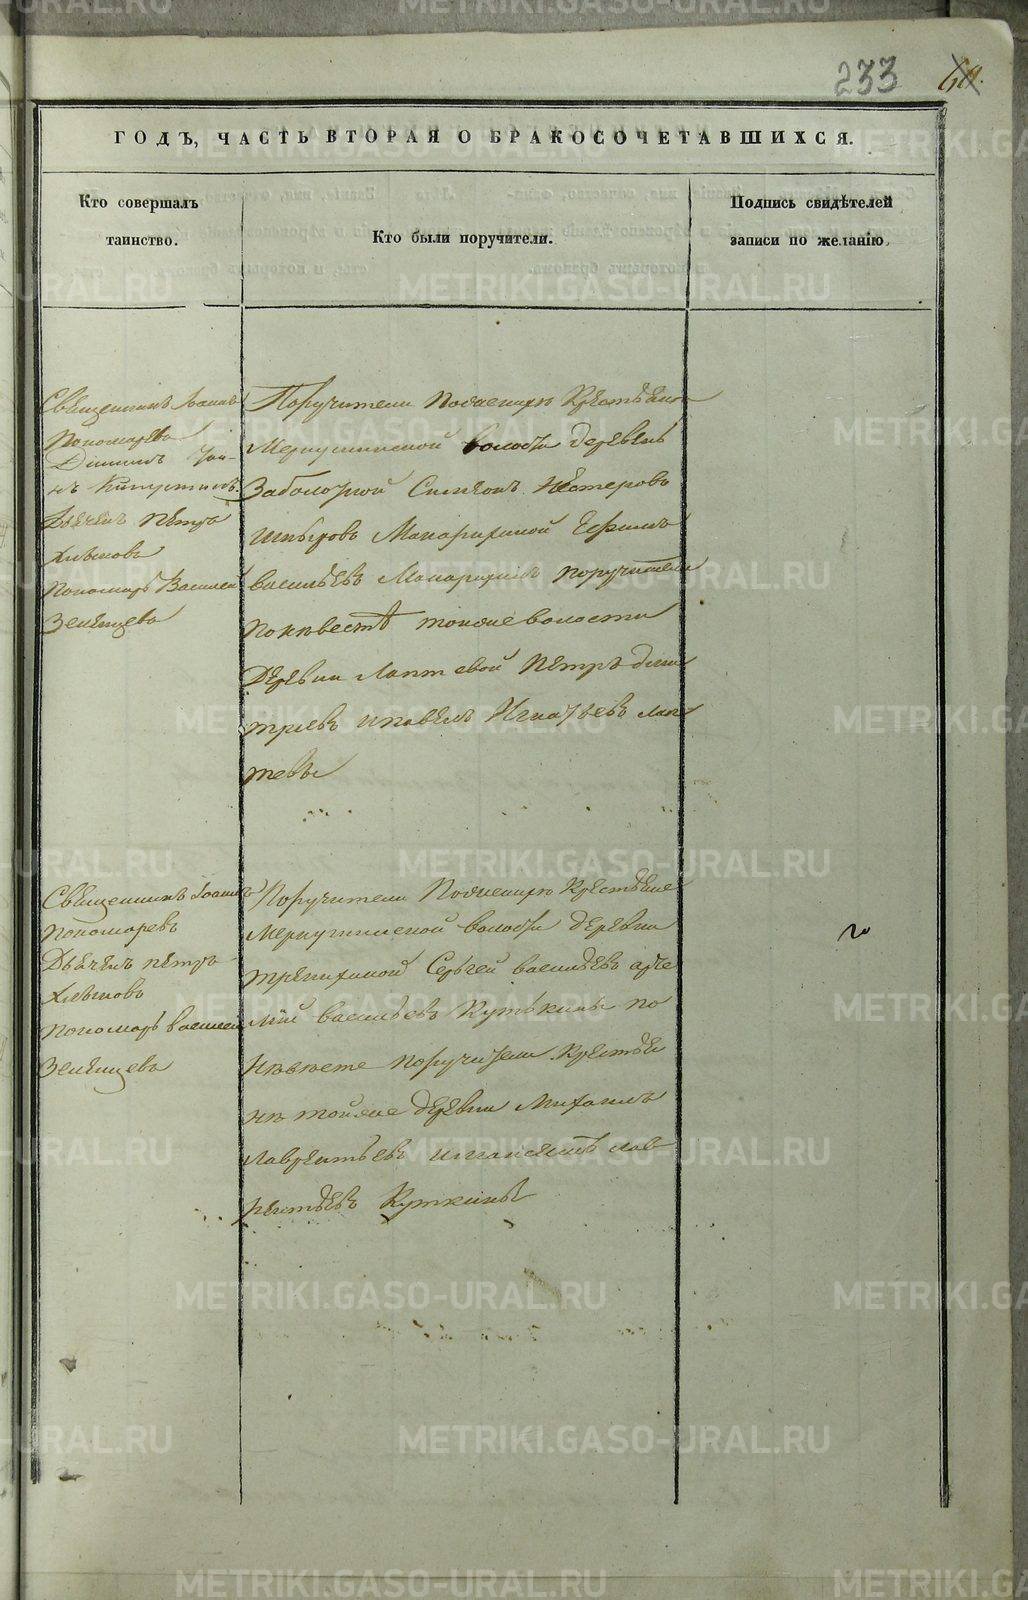 233
ГОДЪ, ЧАСТЬ ВТОРАЯ О БРАКОСОЧЕТАВШИХСЯ.
Кто совершалъ
таинство.
Кто были поручители.
Подпись свидѣтелей
записи по желанію.
Священникъ Іоаннъ
Пономаревъ
Діаконъ
Дьячекъ Петръ
Хлыновъ
Пономарь Василей
Зеленцевъ
Поручители По женихѣ Крестьяне
Меркушинской волости деревень
Заболотной Симеонъ Нестеровъ
Макарихиной Ефимъ
Васильевъ Макарихинъ поручители
по невестѣ тойже волости
деревни Лаптевой Петръ Дми
тріевъ и Павелъ Игнатьевъ Лап
тевы
Священникъ Іоаннъ
Пономаревъ
Дьячекъ Петръ
Хлыновъ
Пономарь Василей
Зеленцевъ
Поручители По женихѣ Крестьяне
Меркушинской волости деревни
Трепихиной Сергей Васильевъ
Васильевъ Кутькины по
невесте поручители Крестья
не тойже деревни Михаилъ
Лаврентьевъ Лав
рентьевъ Куткины
METRIKI.GASO-URAL.RU